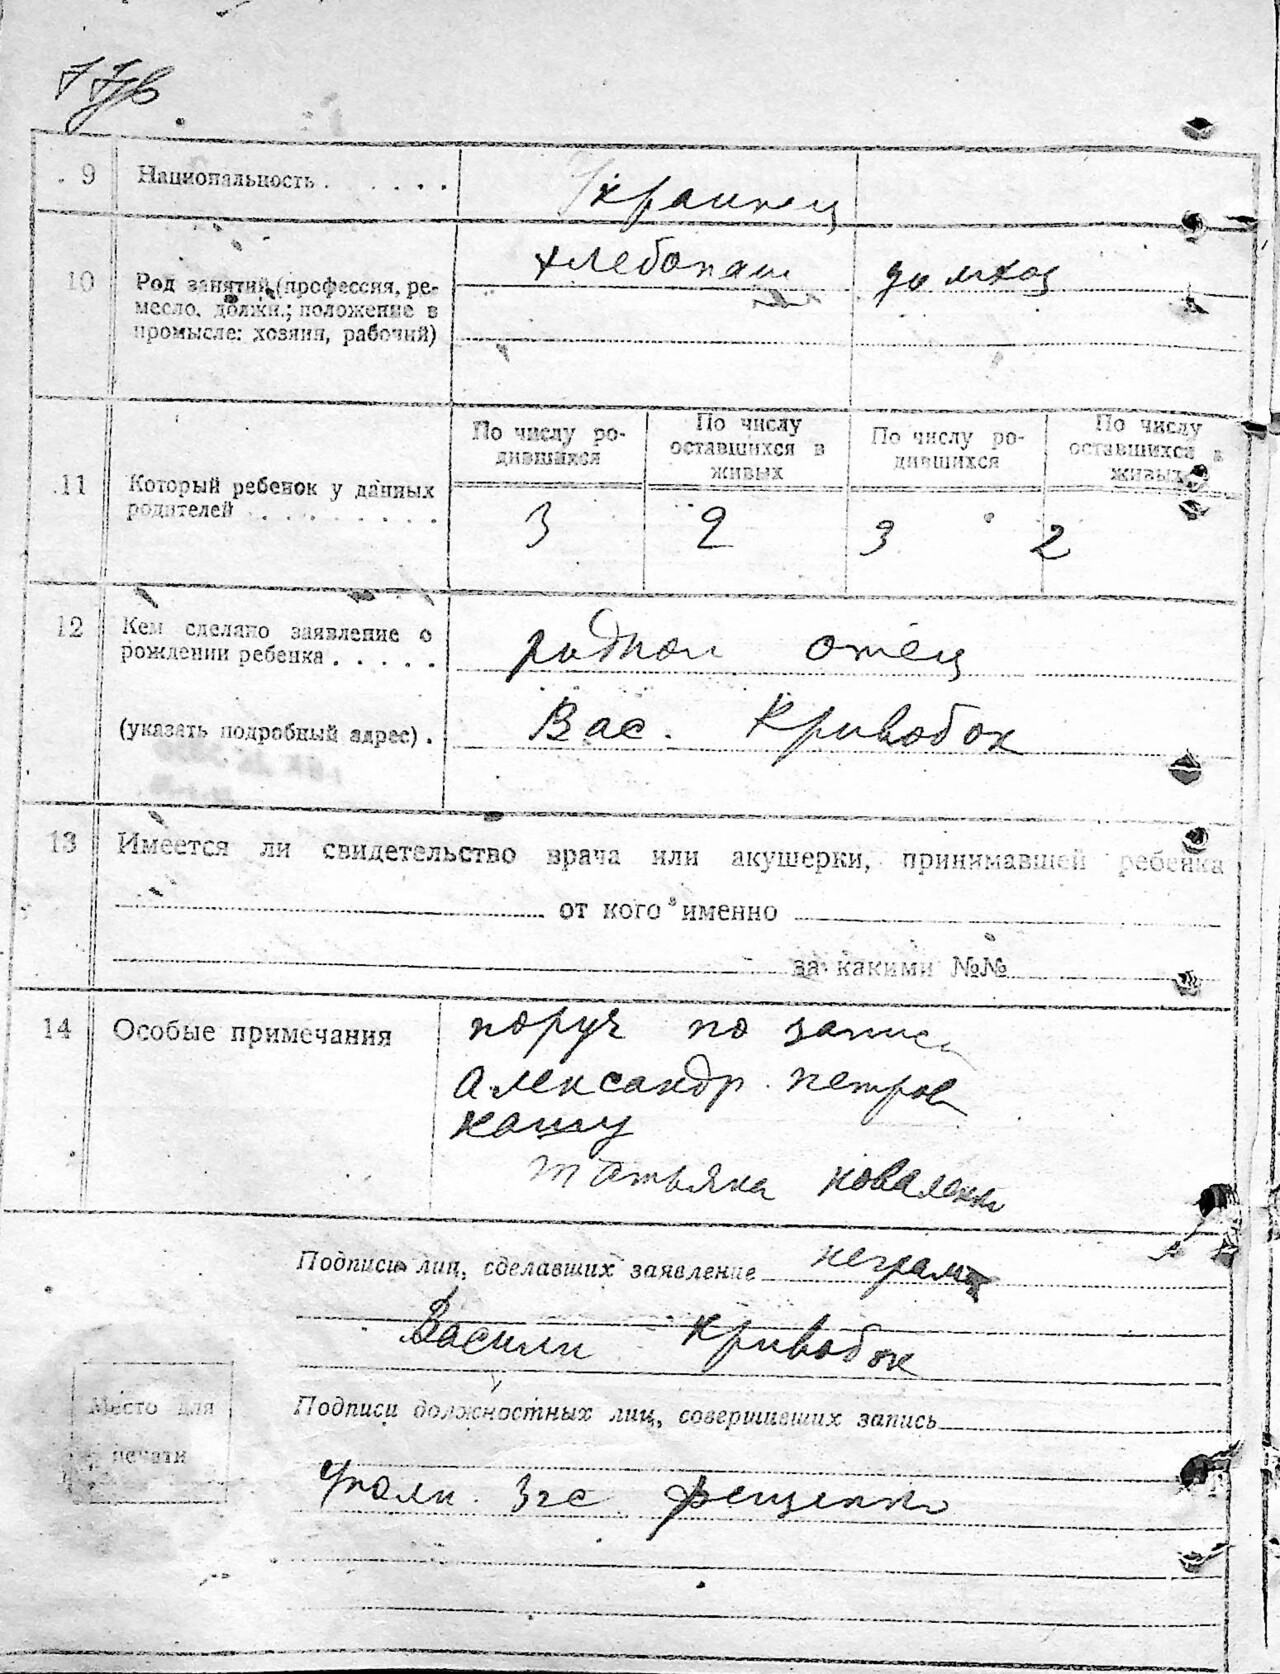 9 Национальность . . . . . . Украинец
10 Род занятий (профессия, ре-
месло, должн.; положение в
промысле: хозяин, рабочий)
хлебопаш домхоз
11 Который ребенок у данных
родителей . . . . . . . . .
По числу ро-
дившихся
По числу
оставшихся в
живых
По числу ро-
дившихся
По числу
оставшихся в
живых
3 2 3 2
12 Кем сделано заявление о
рождении ребенка . . . . .
родной отец
(указать подробный адрес) .
Вас. Кривобок
13 Имеется ли свидетельство врача или акушерки, принимавшей ребенка
от кого именно
за какими №№
14 Особые примечания
поруч по записи
Александр петров
Татьяна коваленко
Подписи лиц, сделавших заявление неграм
Васили Кривобок
Место для
печати
Подписи должностных лиц, совершивших запись
Загс